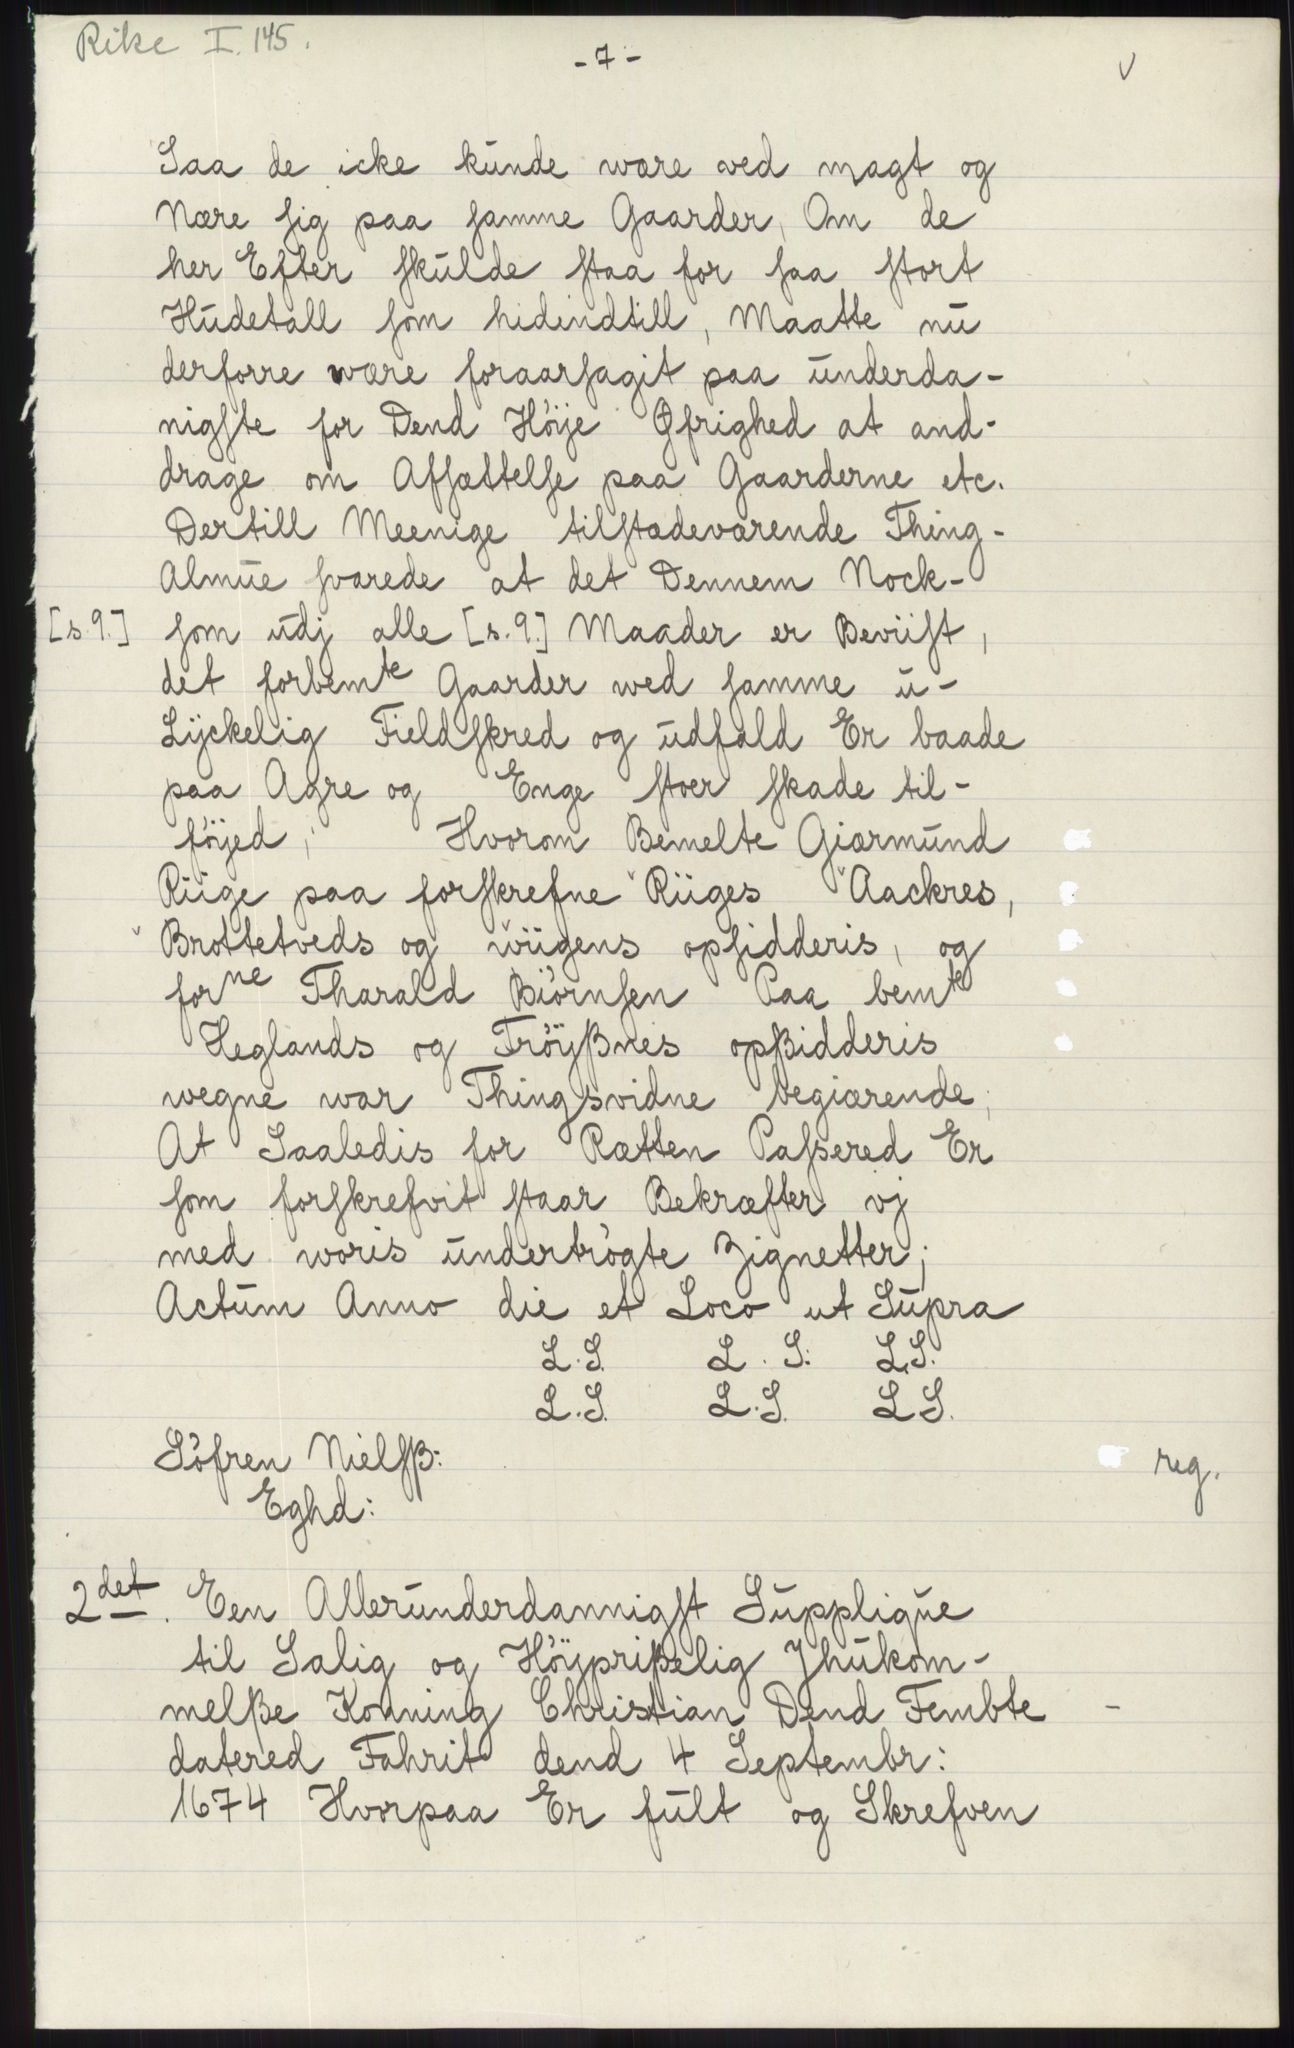 Rike I. 145.
- 7 -
v
Saa de icke kunde wære ved magt og
Nære sig paa samme Gaarder, Om de
her Efter skulde staa for saa stort
Hudetall som hidindtill, Maatte nu
derforre wære foraarsagit paa underda-
nigste for Dend Höije Øfrighed at and-
drage om Afsættelse paa Gaarderne etc.
Dertill Meenige tilstædeværende Thing-
Almue svarede at det Dennem Nock-
[s.9.] som udj alle [s.9.] Maader er Beviist,
det forbemte Gaarder wed samme u-
Lÿckelig Fieldskred og udfald Er baade
paa Agre og Enge stoer skade til-
föjed; Hvorom Bemelte Giærmund
Riige paa forskrefne Riiges Aackres,
Brottetveds og wiigens opsidderis, og
forne Tharald Biörnsen Paa bemte
Heglands og Tröÿßnes opßidderis
wegne war Thingsvidne begiærende;
At Saaledis for Rætten Passered Er
som forskrefvit staar Bekræfter vj
med woris undertrögte Zignetter;
Actum Anno die et Loco ut Supra
L.S. L.S. L.S.
L.S. L.S. L.S.
Söfren Nielsß:
Eghd:
reg.
2det. Een Allerunderdannigst Supplique
til Salig og Höÿprißelig Jhukom-
melße Konning Christian Dend Fembte -
datered Fahrit dend 4 Septembr:
1674 Hvorpaa Er fult og Skrefven